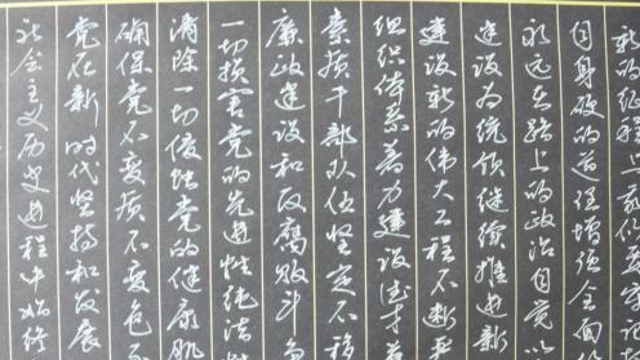 新的征程上我们要牢记
自身硬的道理增强全面
永远在路上的政治自觉以
建设为统领继续推进新
建设新的伟大工程不断严
组织体系着力建设德才
素质干部队伍坚定不移
廉政建设和反腐败斗争
一切损害党的先进性纯洁性
清除一切侵蚀党的健康肌
确保党不变质不变色不
党在新时代坚持和发展
社会主义历史进程中始终